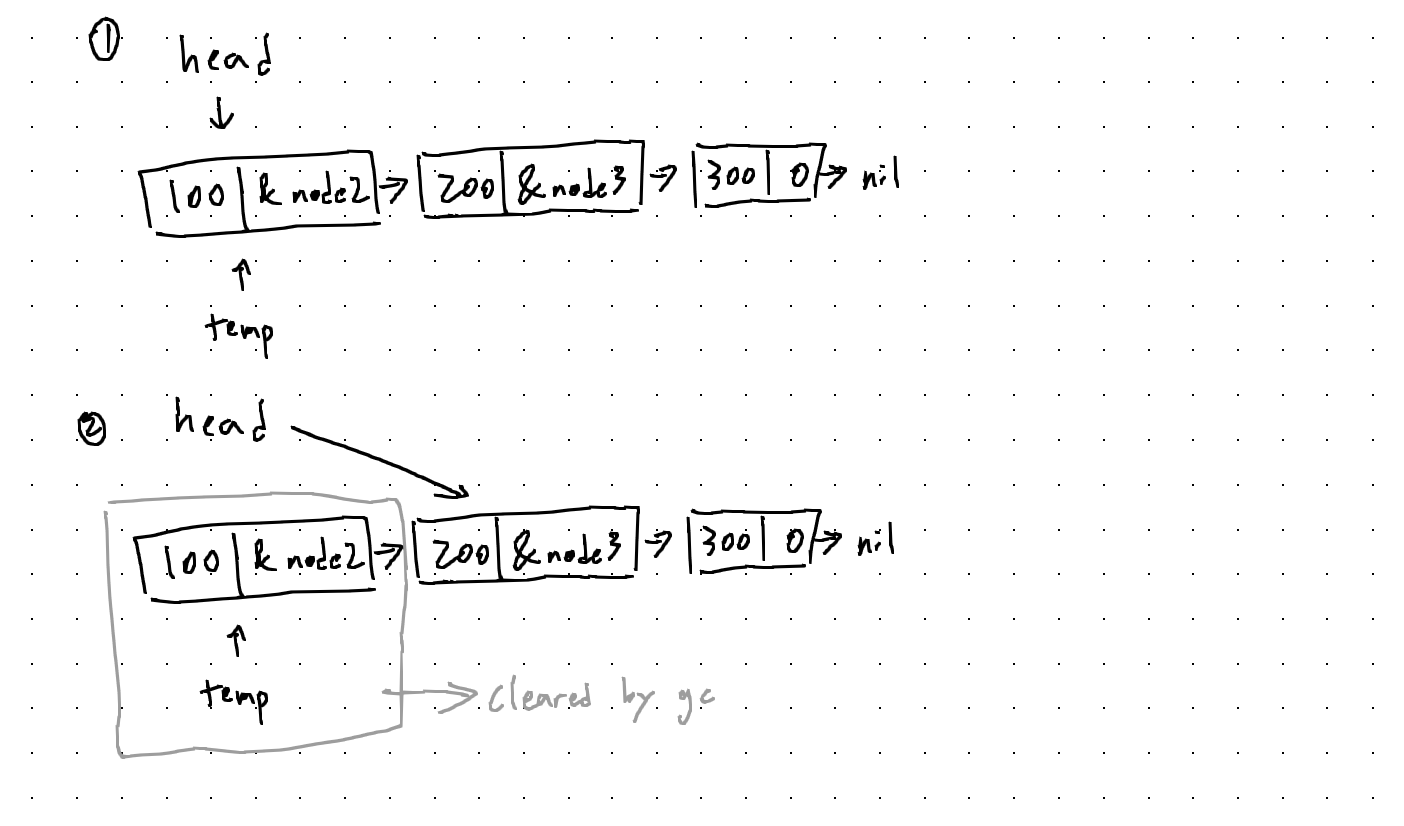 ① head
100 & node2 → 200 & node3 → 300 0 → nil
temp
② head
100 & node2 → 200 & node3 → 300 0 → nil
temp → cleared by gc